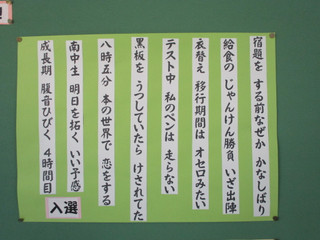 宿題を する前なぜか かなしばり
給食の じゃんけん勝負 いざ出陣
衣替え 移行期間は オセロみたい
テスト中 私のペンは 走らない
黒板を うつしていたら けされてた
八時五分 本の世界で 恋をする
南中生 明日を拓く いい予感
成長期 腹音ひびく 4時間目
入選